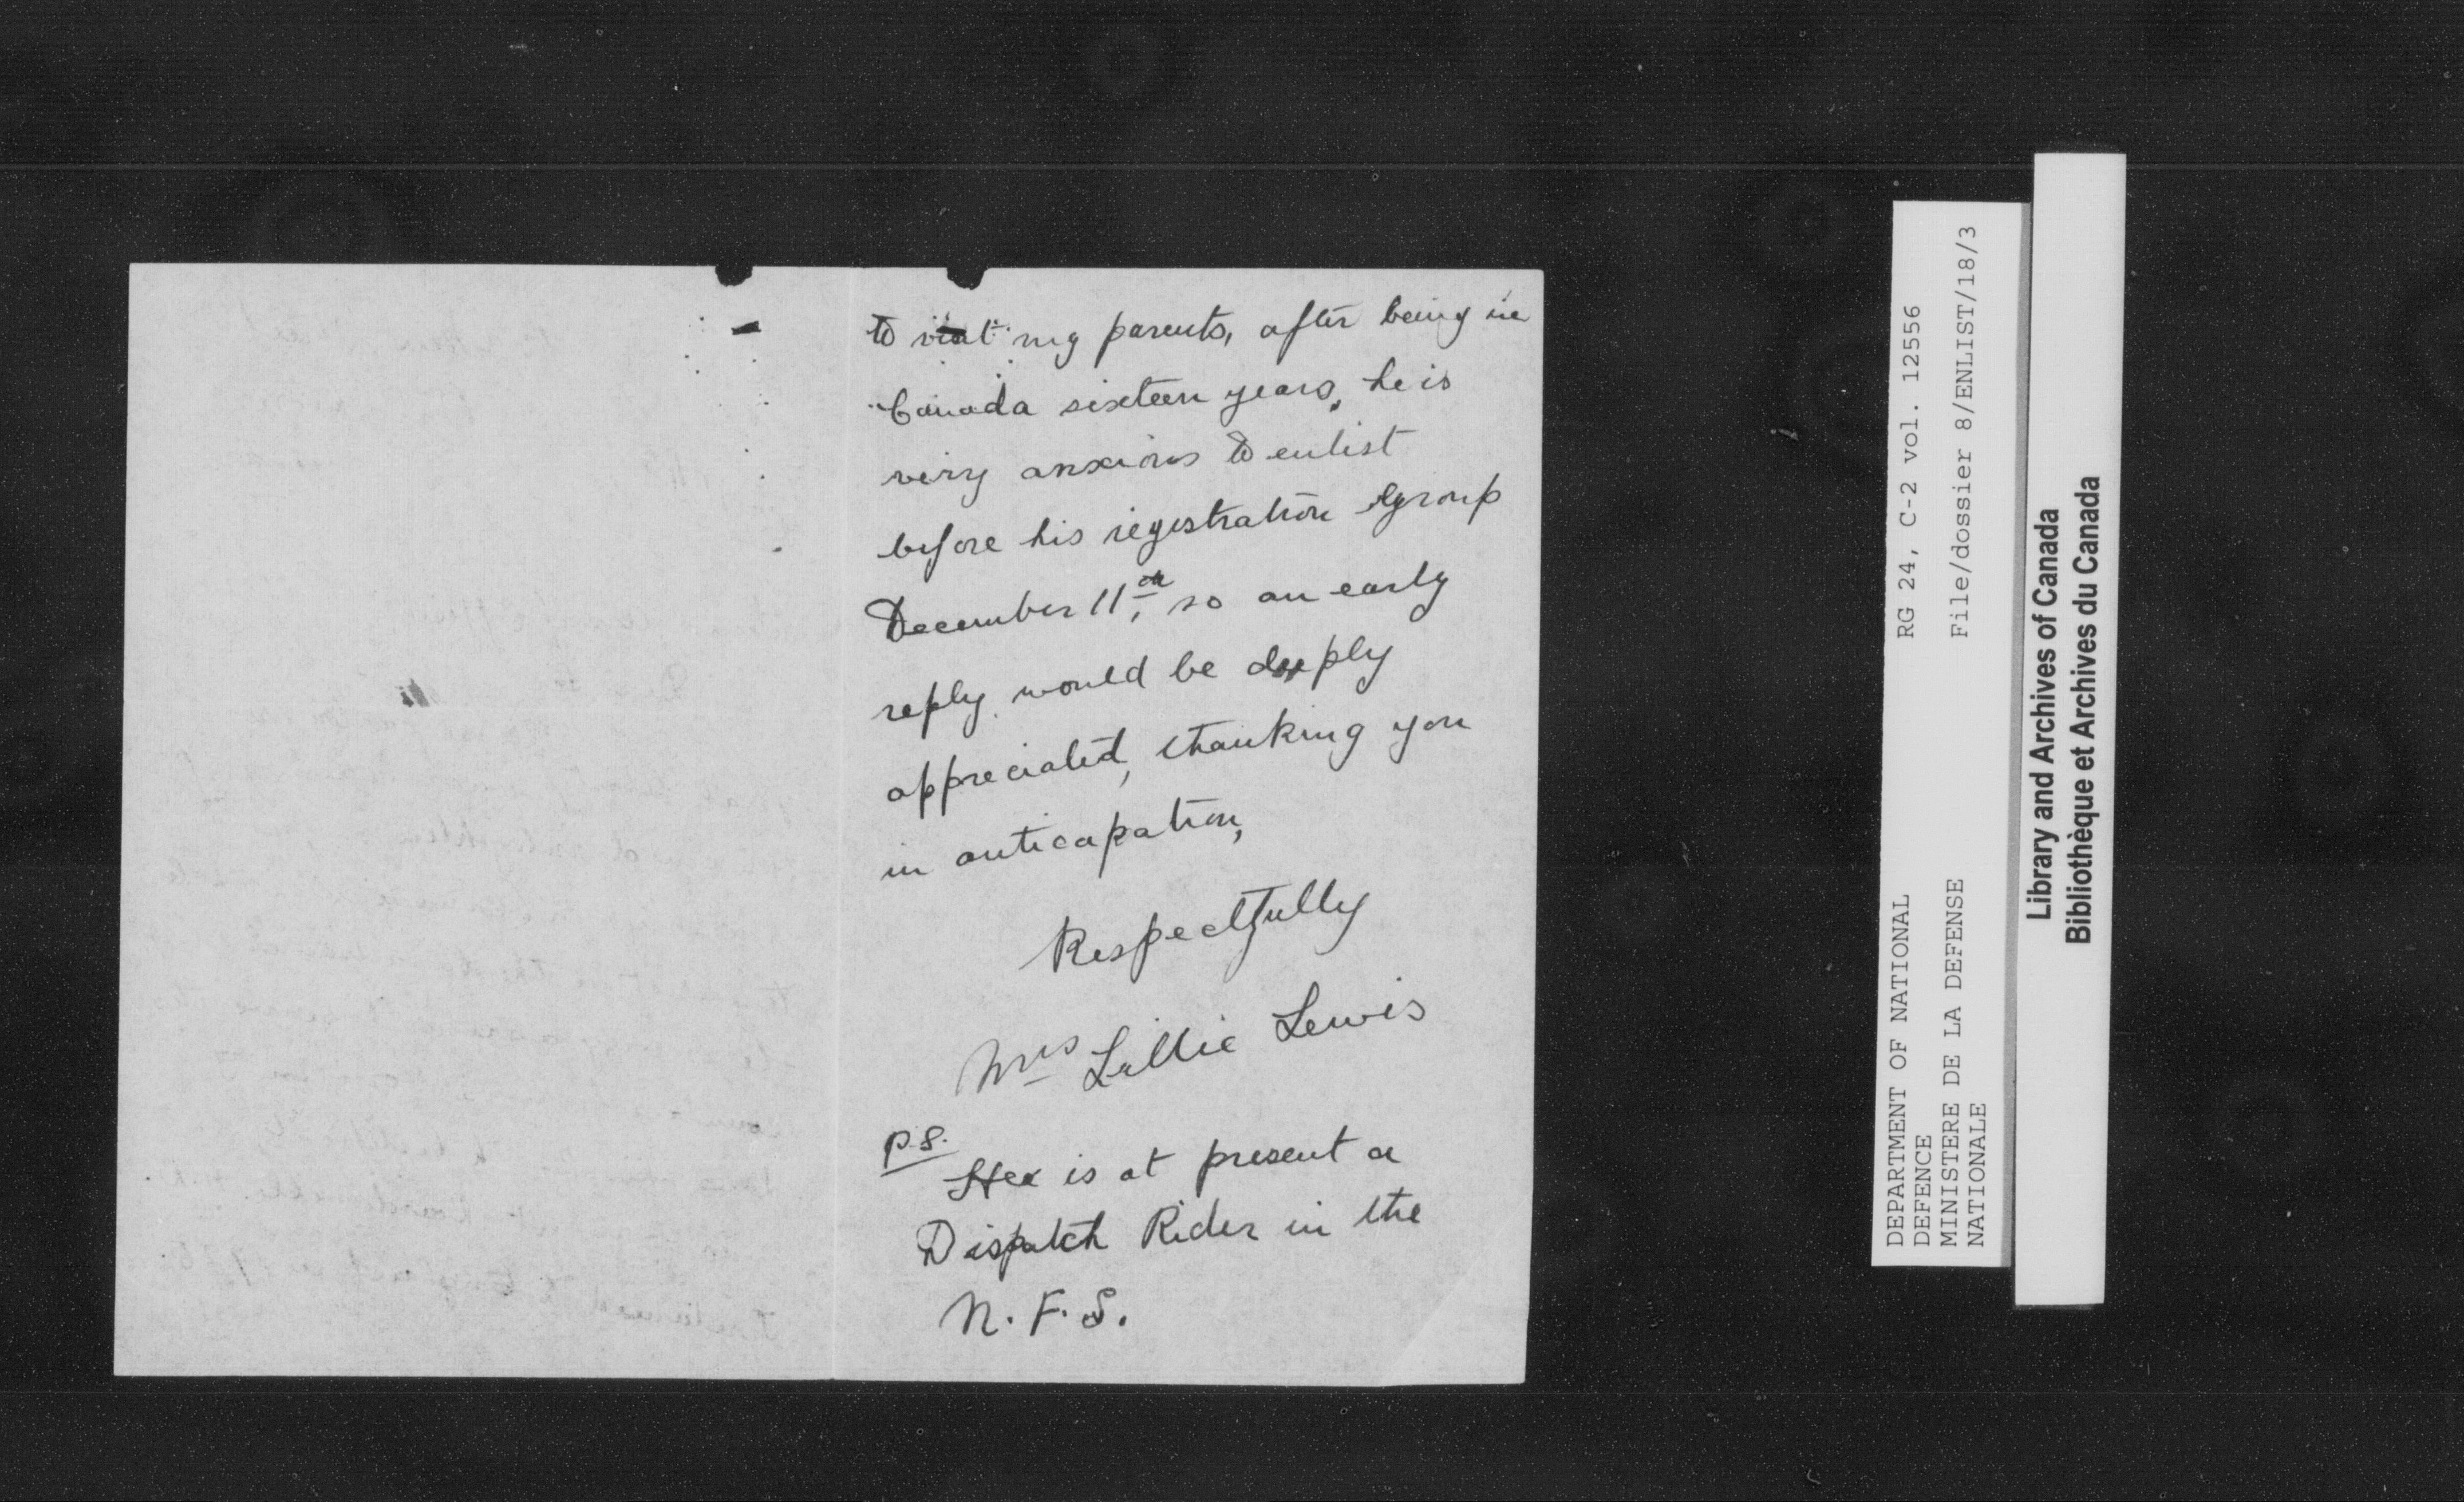 to visit my parents, after being in
Canada sixteen years, he is
very anxious to enlist
before his registration group
December 11th, so an early
reply would be deeply
appreciated, thanking you
in anticapation,
Respectfully
Mrs Lillie Lewis
P.S.
He is at present a
Dispatch Rider in the
N.F.S.
DEPARTMENT OF NATIONAL
DEFENCE
MINISTERE DE LA DEFENSE
NATIONALE
RG 24, C-2 vol. 12556
File/dossier 8/ENLIST/18/3
Library and Archives of Canada
Bibliothèque et Archives du Canada